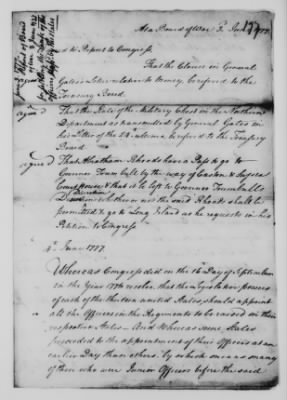 At a Board of War 3d June 1777
Agreed to Report to Congress
That the Clause in General
Gates's Letter relative to Money, be referred to the
Treasury Board
agreed That the State of the Military Chest in the Northern
Department as transmitted by General Gates in
his Letter of the 24th ultimo be referred to the Treasury
Board
agreed That Rhoads have a Pass to go to
Governor Trumbull by the way of Easton & Sussex
Court House & that it be left to Governor Trumbull's
Direction whether or not the said Rhoads shall be
permitted to go to Long Island as he requests in his
Petition to Congress
4th June 1777.
Whereas Congress did on the 16th Day of September
in the Year 1776 resolve, that the Legislative powers
of each of the thirteen united States, should appoint
all the Officers in the Regiments to be raised in their
respective States — And Whereas some States
proceeded to the appointment of their Officers at an
earlier Day than others, by which means many
of them who were Junior Officers before the said